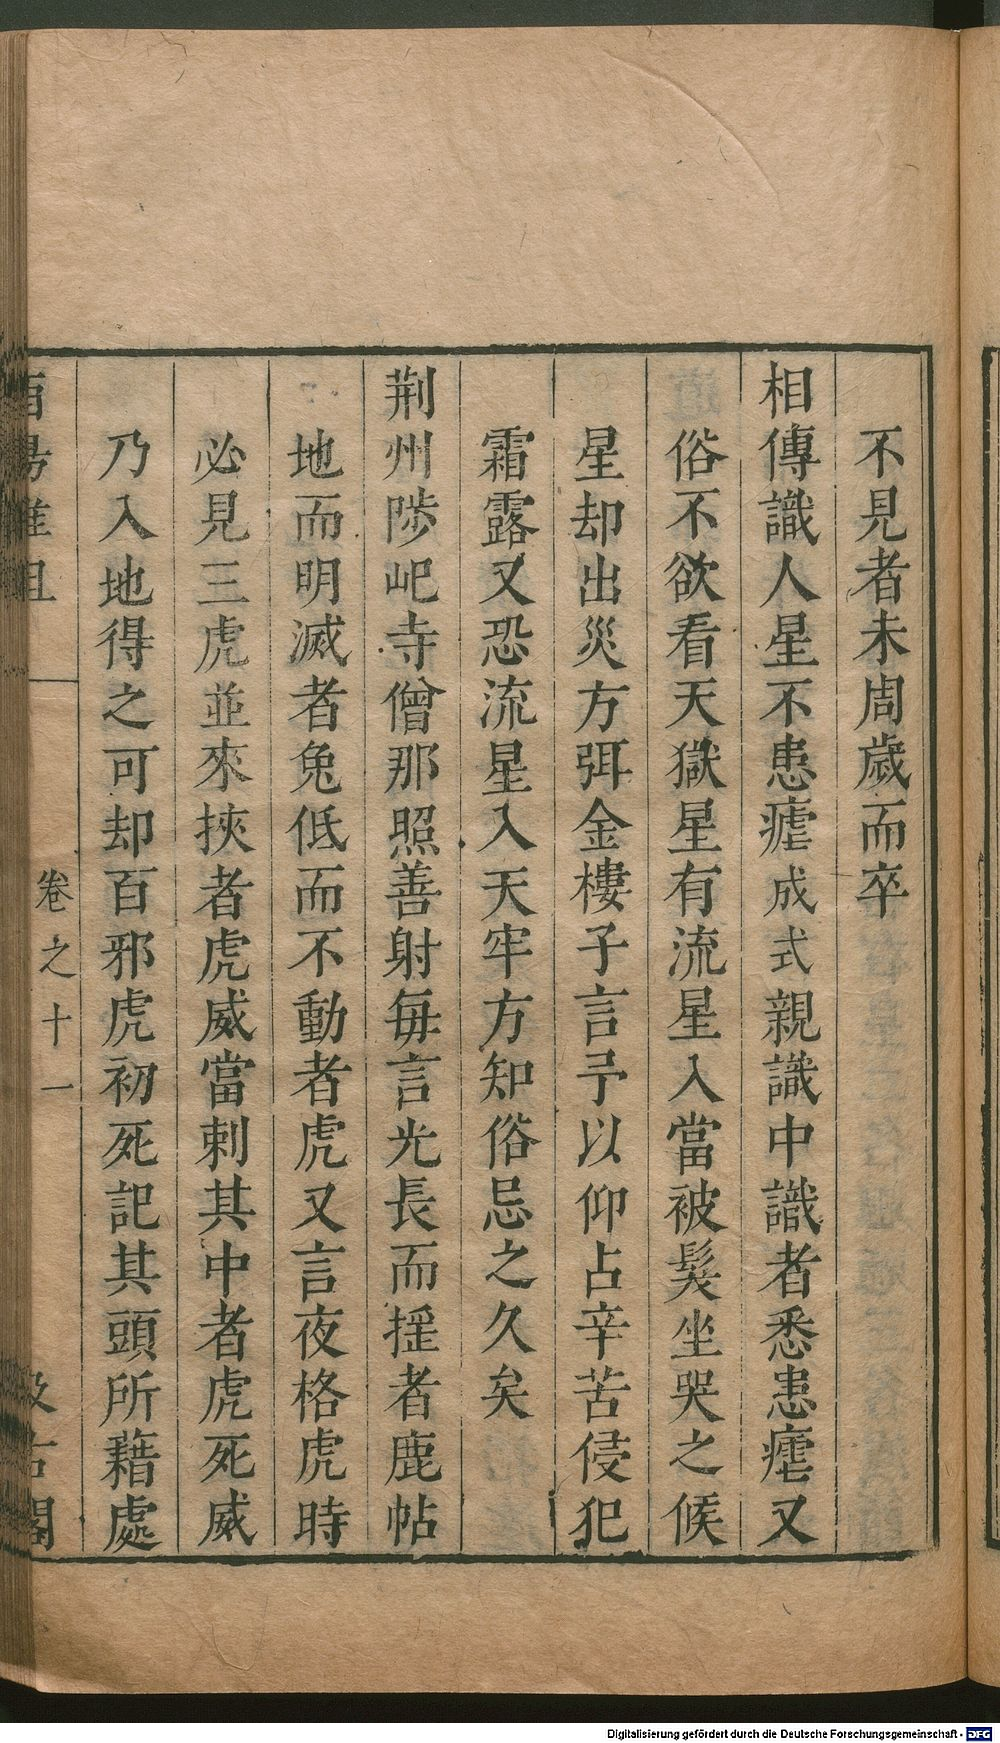 不見者未周歲而卒
相傳識人星不患瘧成式親識中識者悉患瘧又
俗不欲看天獄星有流星入當被髮坐哭之候
星却出災方弭金樓子言予以仰占辛苦侵犯
霜露又恐流星入天牢方知俗忌之久矣
荆州陟屺寺僧那照善射每言光長而揺者鹿帖
地而明滅者兔低而不動者虎又言夜格虎時
必見三虎並來挾者虎威當刺其中者虎死威
乃入地得之可却百邪虎初死記其頭所藉處
酉陽雜俎 卷之十一 汲古閣
Digitalisierung gefördert durch die Deutsche Forschungsgemeinschaft - DFG